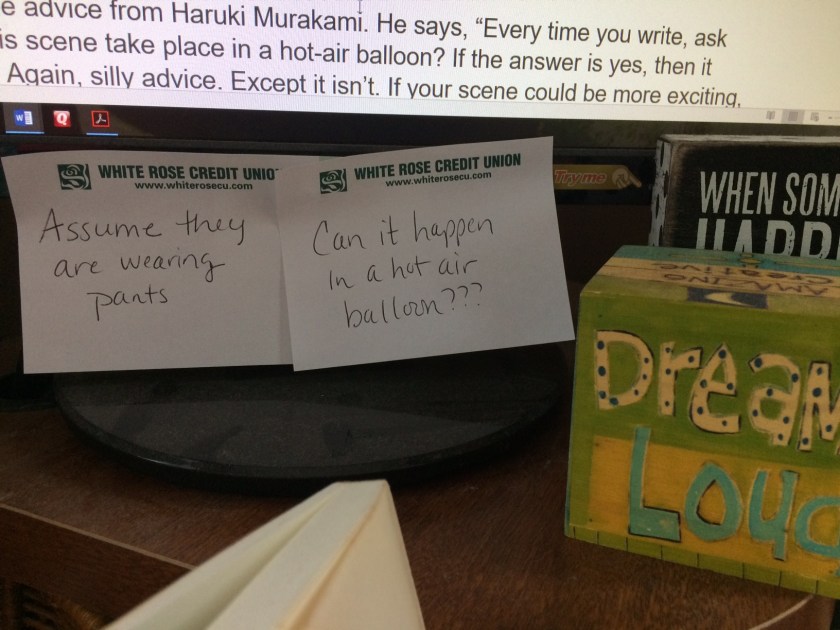 e advice from Haruki Murakami. He says, “Every time you write, ask
is scene take place in a hot-air balloon? If the answer is yes, then it
Again, silly advice. Except it isn’t. If your scene could be more exciting,
WHITE ROSE CREDIT UNIO
www.whiterosecu.com
Assume they
are wearing
pants
WHITE ROSE CREDIT UNION
www.whiterosecu.com
Can it happen
in a hot air
balloon???
Try me
WHEN SOM
AMAZING
Creative
Dream
Loud